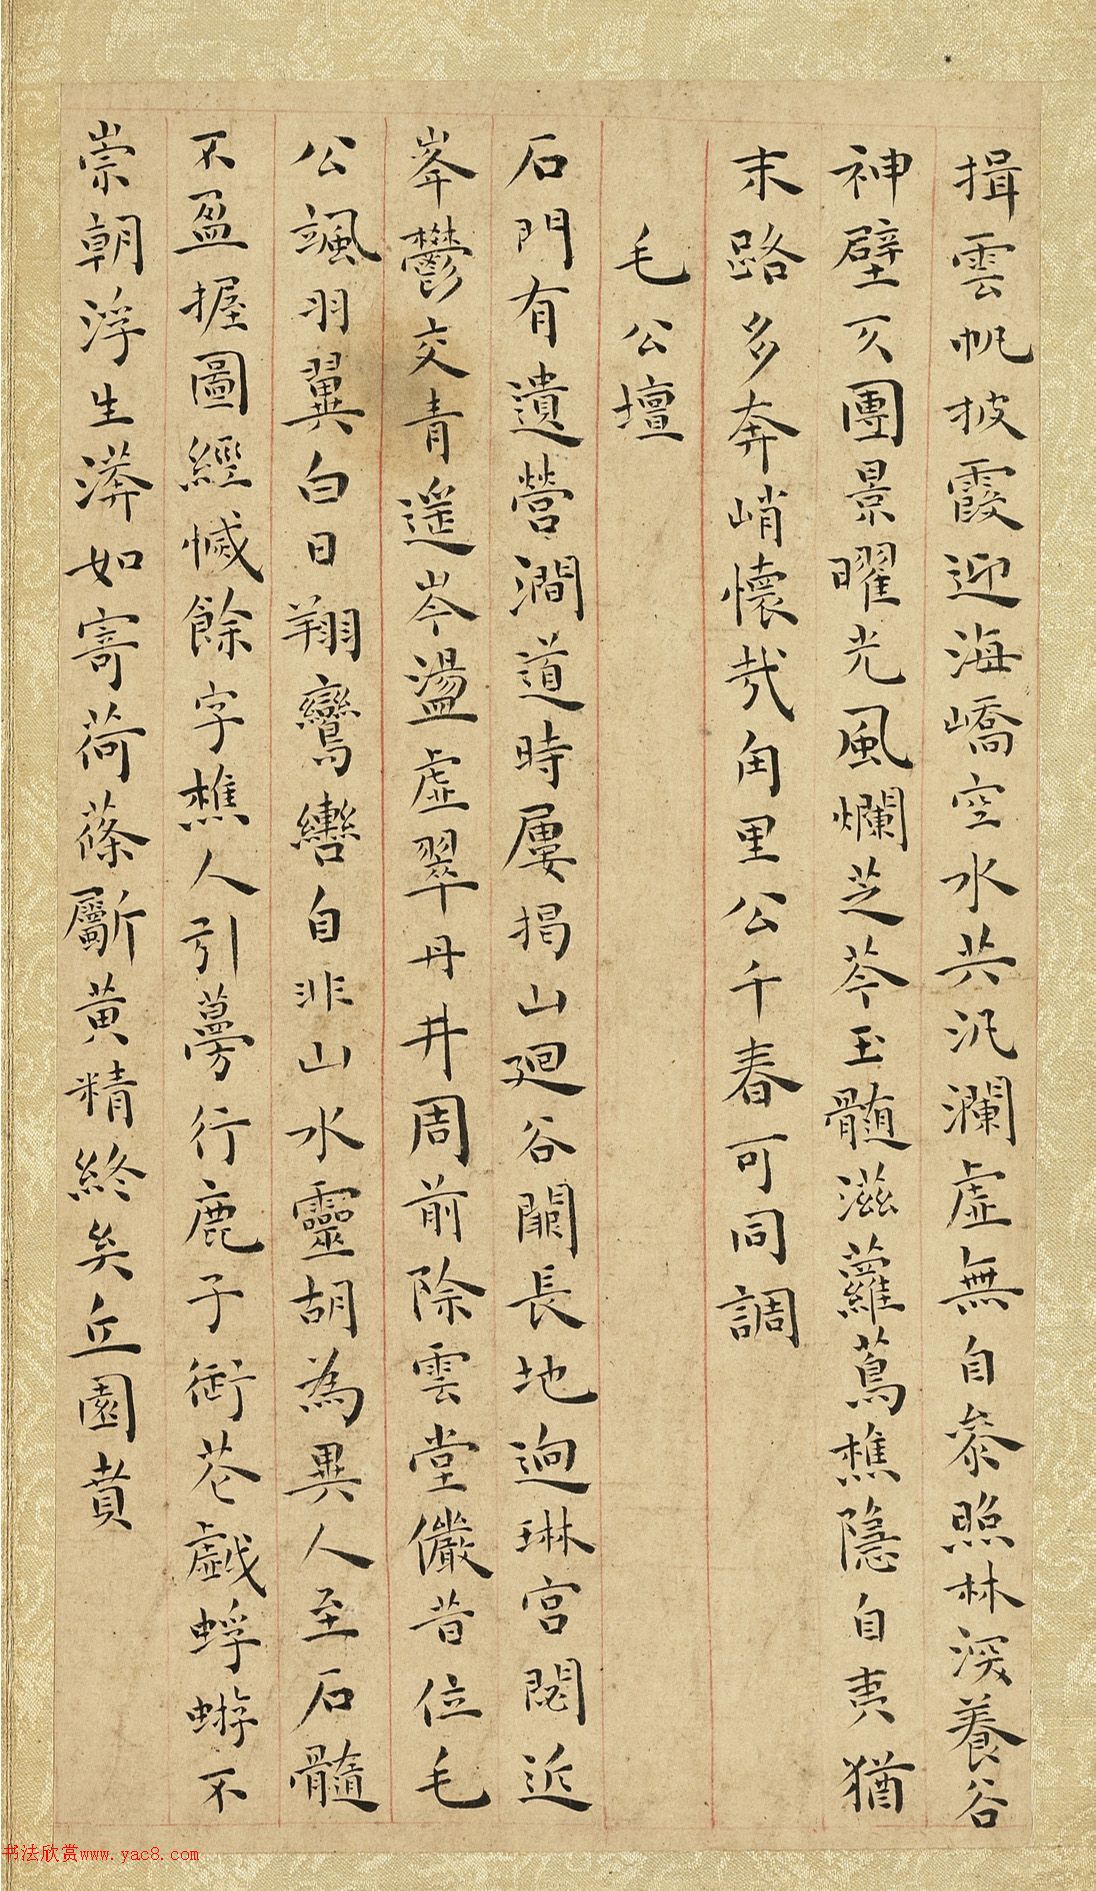 揖雲帆披霞迎海嶠空水共汎瀾虛無自參照林深養谷
神壁仄團景曜光風爛芝苓玉髓滋蘿蔦樵隱自夷猶
末路多奔峭懷哉甪里公千春可同調
毛公壇
石門有遺營澗道時屢揭山廻谷闢長地迥琳宮閟近
峯鬱交青遥岑盪虛翠丹井周前除雲堂儼昔位毛
公颯羽翼白日翔鸞轡自非山水靈胡為異人至石髓
不盈握圖經慽餘字樵人引蔓行鹿子銜花戲蜉蝣不
崇朝浮生漭如寄荷蓧斸黃精終矣丘園賁
书法欣赏www.yac8.com